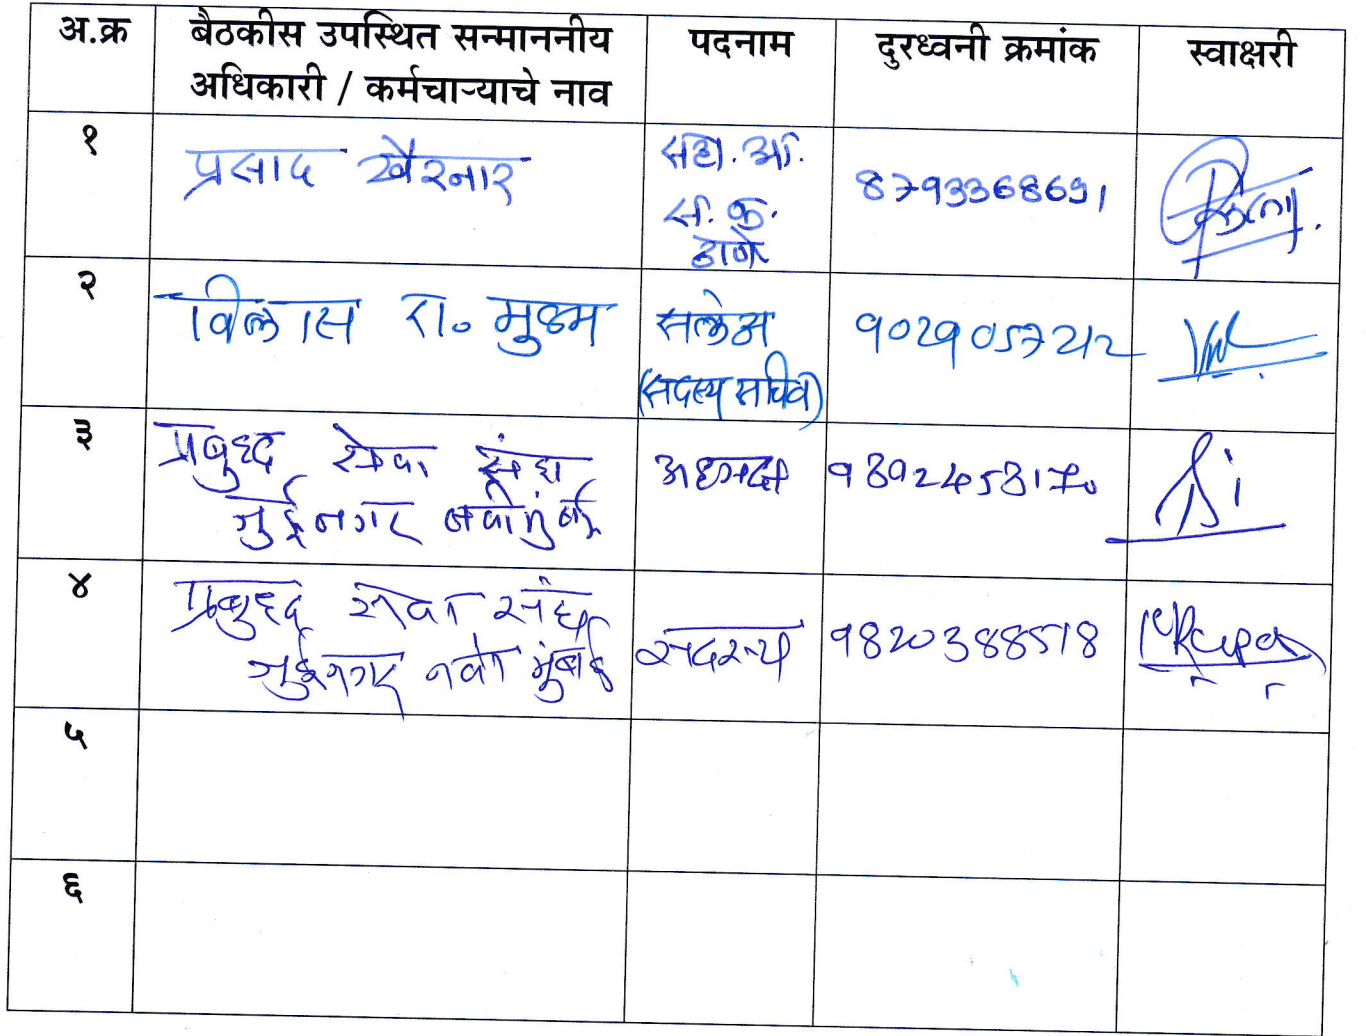 अ.क्र
बैठकीस उपस्थित सन्माननीय
अधिकारी / कर्मचाऱ्याचे नाव
पदनाम
दुरध्वनी क्रमांक
स्वाक्षरी
१
प्रसाद खैरनार
सहा. आ.
स. क.
ठाणे
8793368691
२
विलास रा. मुठम
सलेअ
(सदस्य सचिव)
9029057212
३
प्रबुध्द सेवा संघ
जुईनगर नवी मुंबई
अध्यक्ष
9892458170
४
प्रबुध्द सेवा संघ
जुईनगर नवी मुंबई
सदस्य
9820388518
५
६